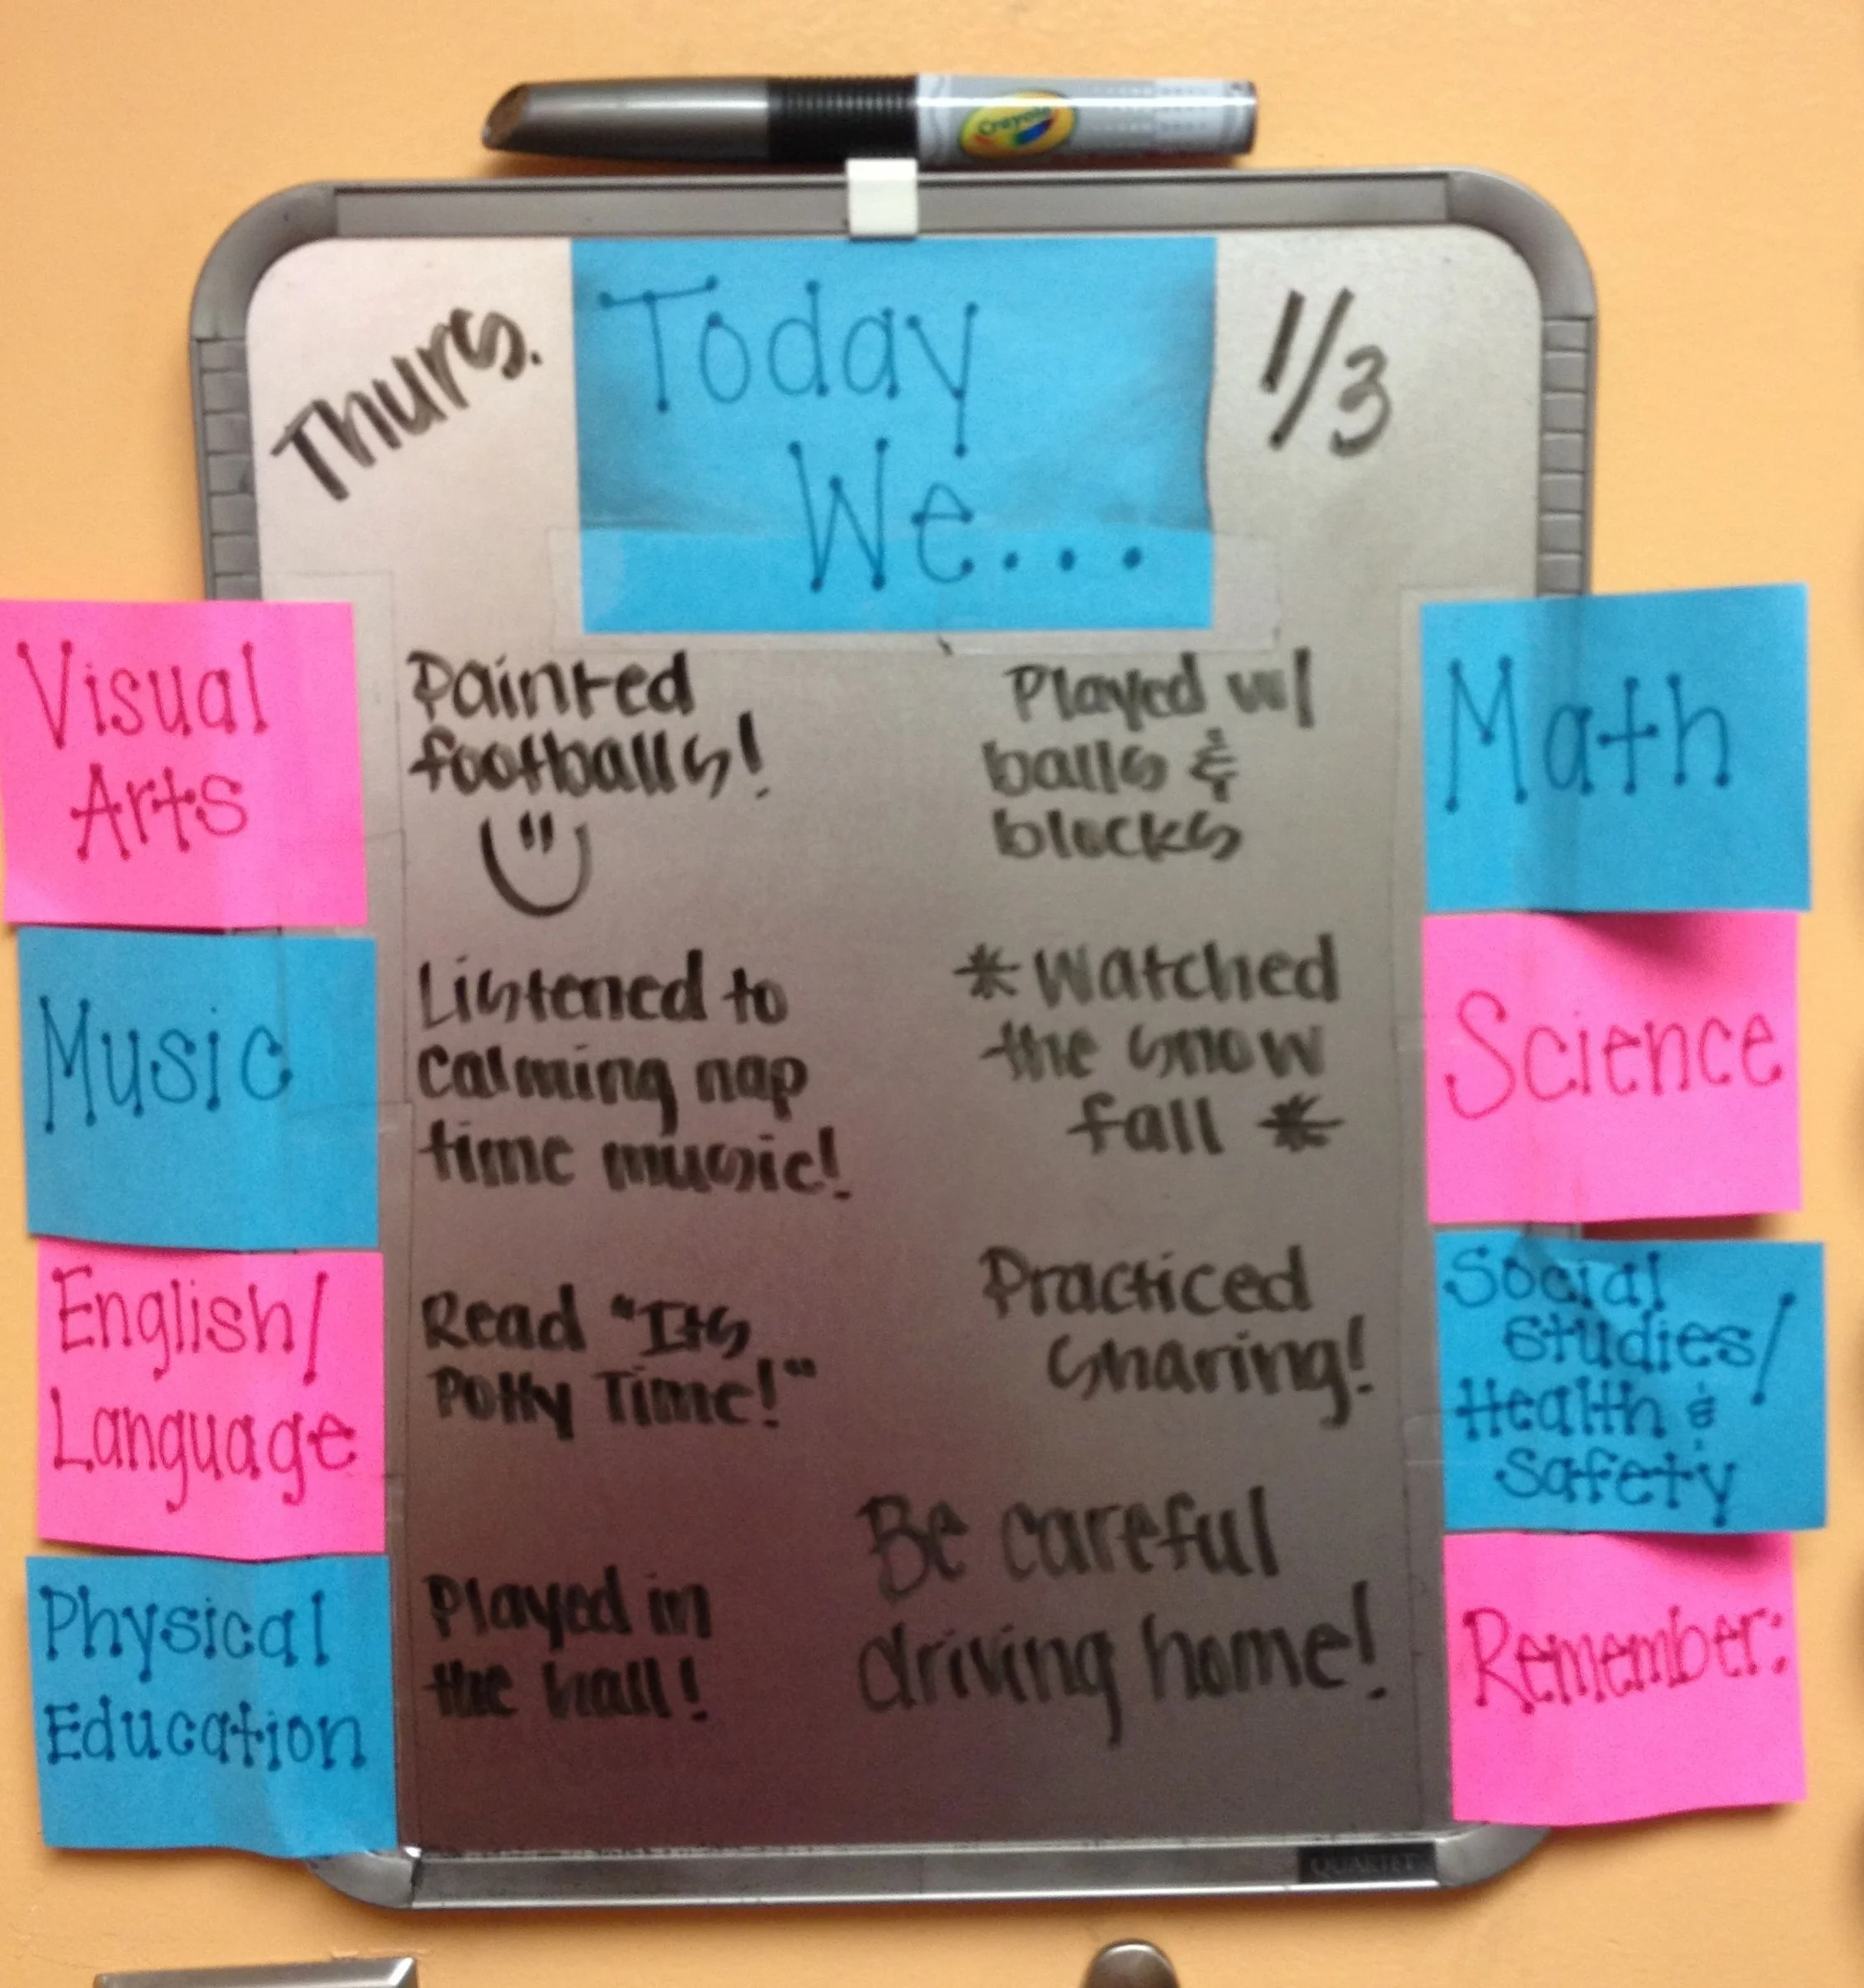 Crayola
Thurs.
Today
We...
1/3
Visual
Arts
Painted
footballs!
Music
Listened to
calming nap
time music!
English/
Language
Read "Its
Potty Time!"
Physical
Education
Played in
the hall!
Played w/
balls &
blocks
Math
*Watched
the snow
fall *
Science
Practiced
sharing!
Social
Studies/
Health &
Safety
Be careful
driving home!
Remember:
QUARTET